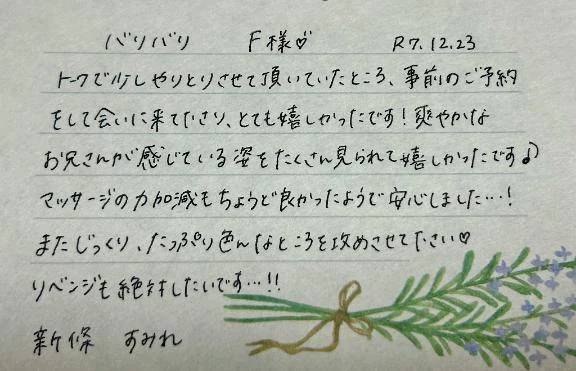 バリバリ F様♡ R7.12.23
トークで少しやりとりさせて頂いていたところ、事前のご予約
をして会いに来て下さり、とても嬉しかったです！爽やかな
お兄さんが感じている姿をたくさん見られて嬉しかったです♪
マッサージの力加減もちょうど良かったようで安心しました…！
またじっくり、たっぷり色んなところを攻めさせて下さい♡
リベンジも絶対したいです…!!
新條 すみれ